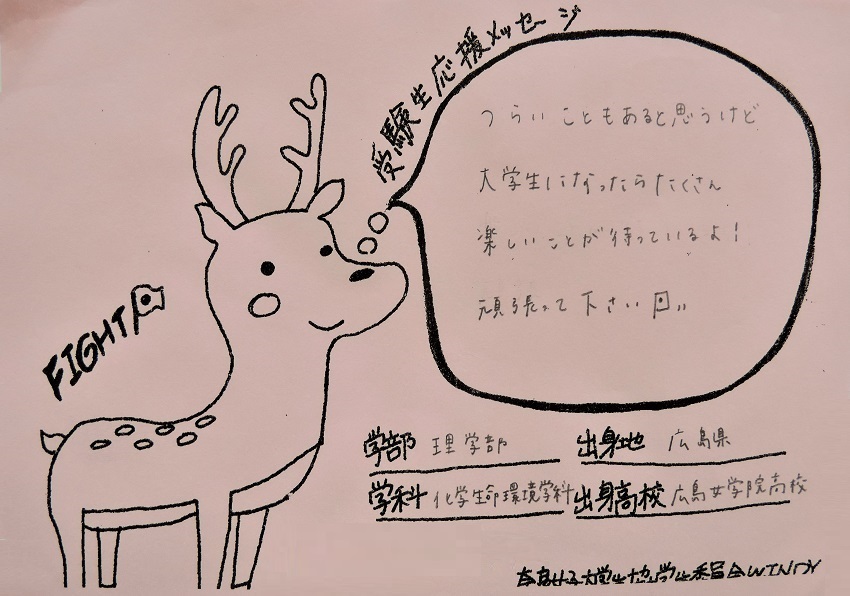 受験生応援メッセージ
つらいこともあると思うけど
大学生になったらたくさん
楽しいことが待っているよ!
頑張って下さい
FIGHT
学部 理学部
出身地 広島県
学科 化学生命環境学科
出身高校 広島女学院高校
奈良女子大学生協学生委員会WINDY